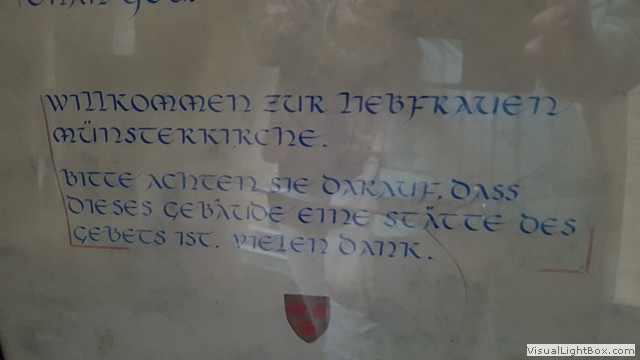 THANK YOU.
WILLKOMMEN ZUR LIEBFRAUEN
MÜNSTERKIRCHE.
BITTE ACHTEN SIE DARAUF, DASS
DIESES GEBÄUDE EINE STÄTTE DES
GEBETS IST. VIELEN DANK.
VisualLightBox.com